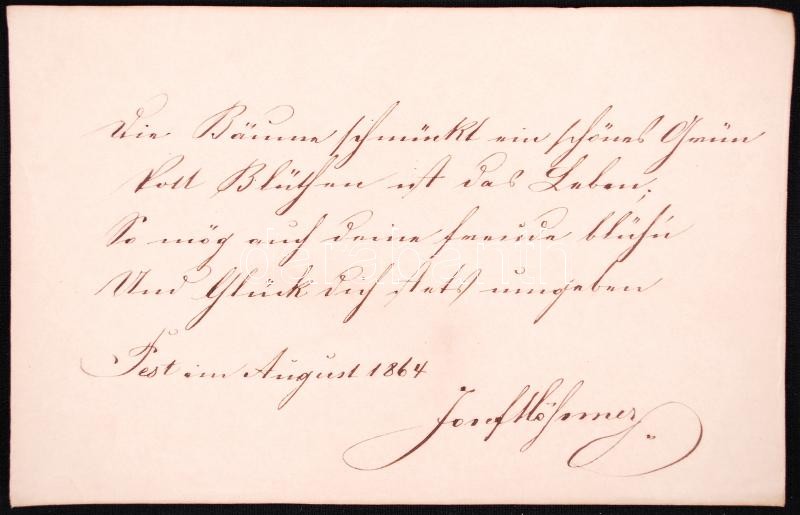 Die Bäume schmückt ein schönes Grün
Voll Blüthen ist das Leben;
So mög auch deine freude blüh'n
Und Glück dich stets umgeben
Pest im August 1864
Josef